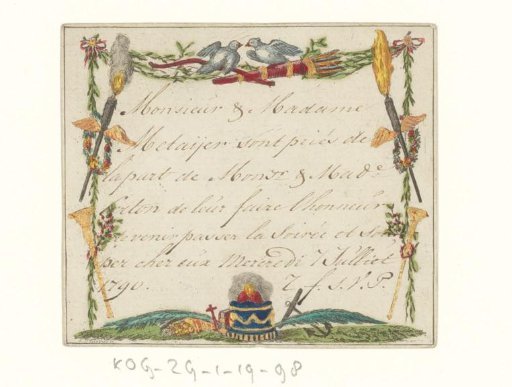 Monsieur & Madame
Melaijer sont priés de
la part de Monsr. & Made.
de leur faire l'honneur
venir passer la Soirée et Sou
per chez eux Mercredi 7 Juilliet
1790. R. f. S. V. P.
KOG-ZG-1-19-98